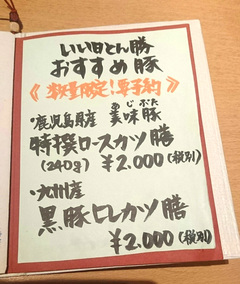 いい日とん勝
おすすめ豚
《数量限定!要予約》
・鹿児島県産 美味豚
あじぶた
特撰ロースカツ膳
(240g) ¥2,000(税別)
・九州産
黒豚ヒレカツ膳
¥2,000(税別)